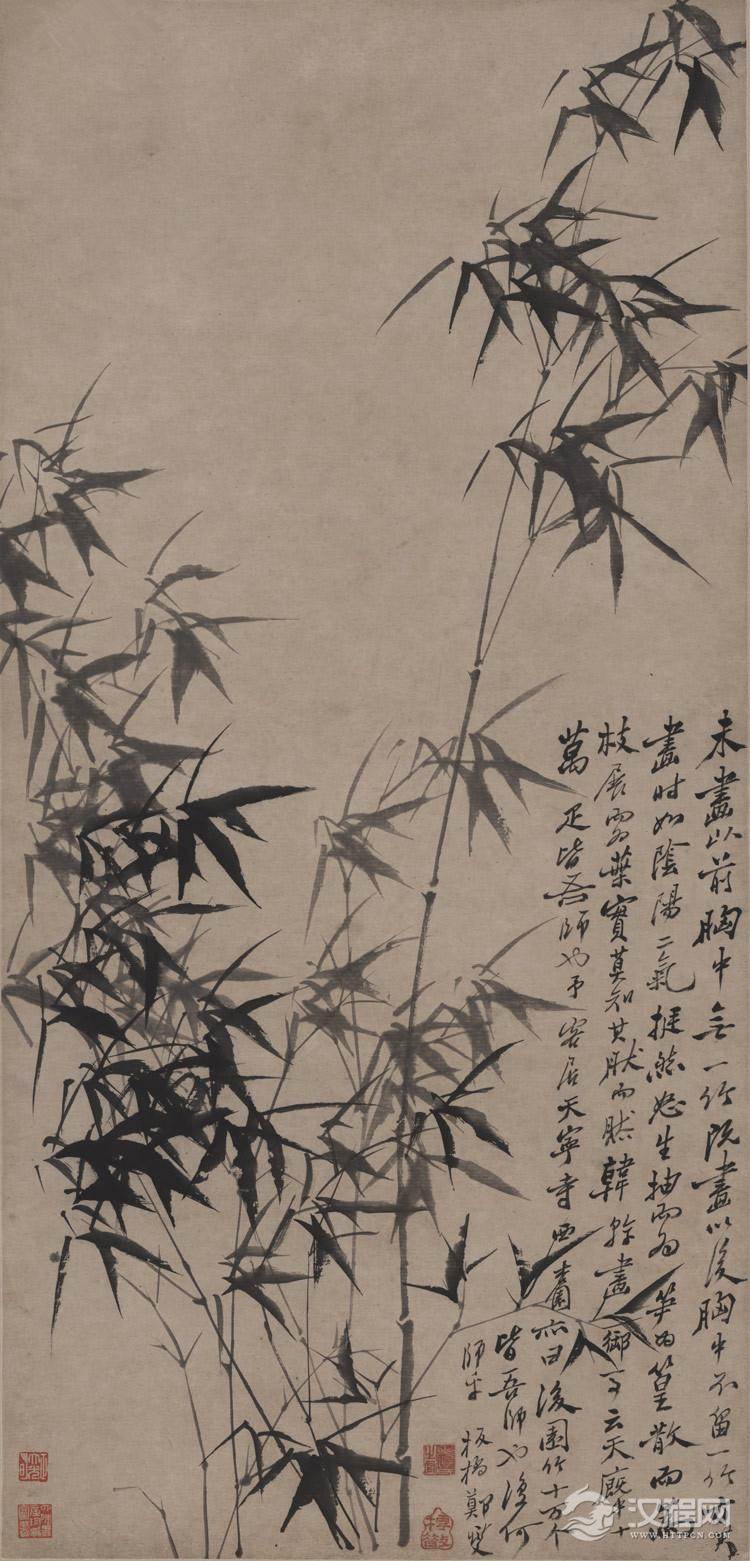 未畫以前胸中無一竹既畫以後胸中不留一竹方其
畫時如陰陽二氣挺然怒生抽而為筍為篁散而為
枝展而為葉實莫知其然而然韓幹畫御馬云天廐中十
萬疋皆吾師也予客居天寧寺西杏園亦曰後園竹十萬个
皆吾師也復何
師乎板橋鄭燮
汉程网
HTTPCN.COM